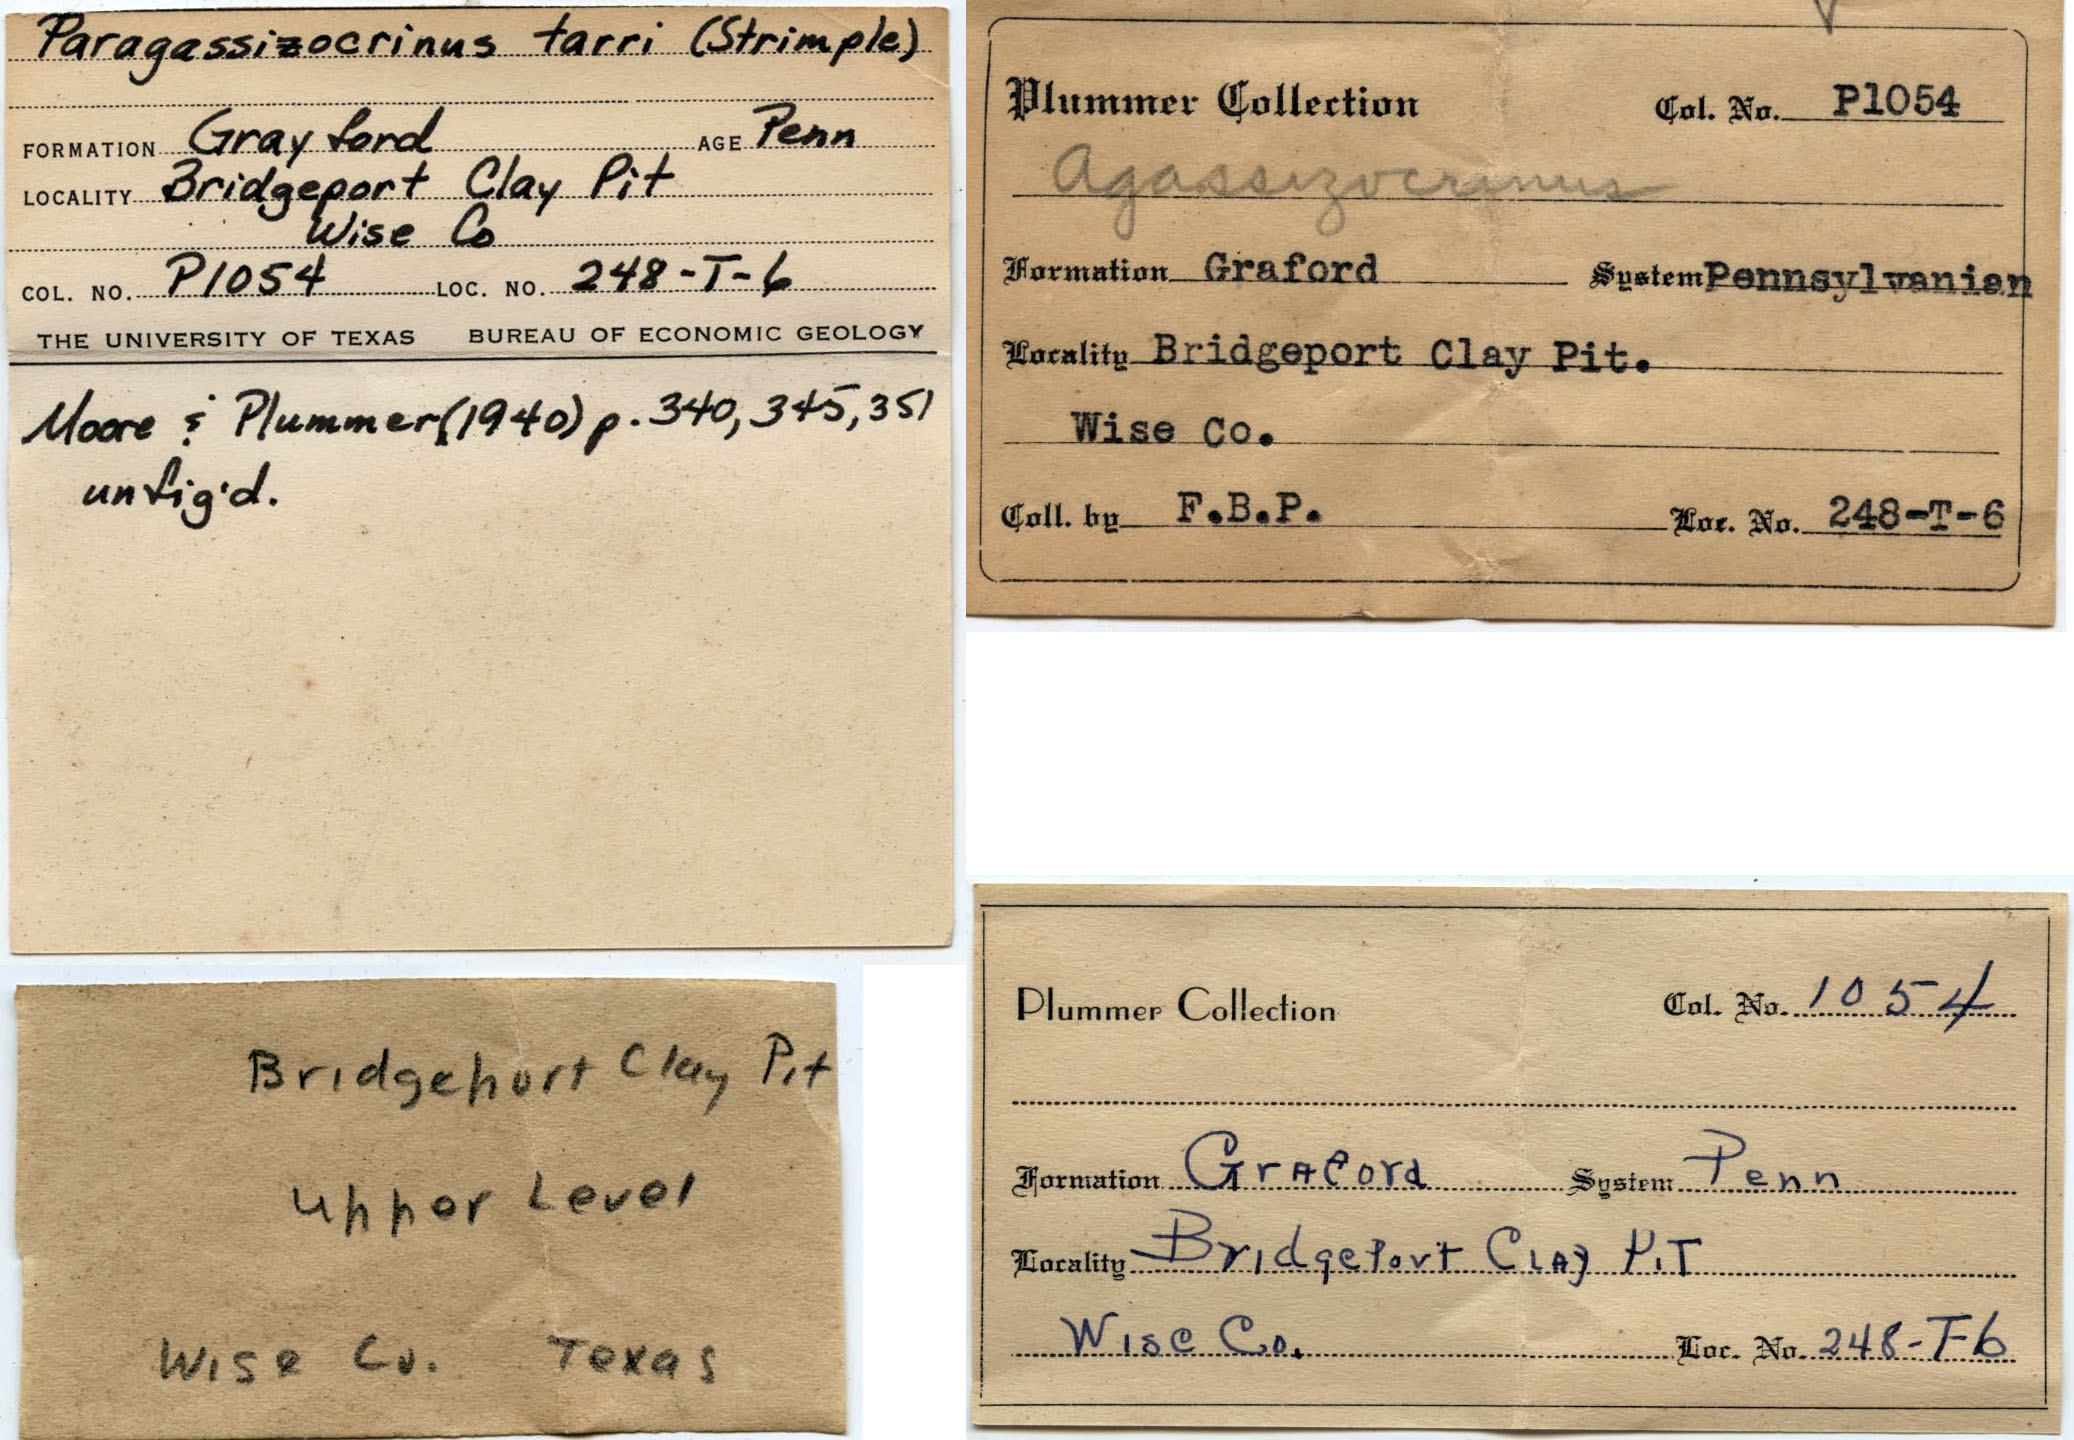 Paragassizocrinus tarri (Strimple)
FORMATION Grayford AGE Penn
LOCALITY Bridgeport Clay Pit
Wise Co
COL. NO. P1054 LOC. NO. 248-T-6
THE UNIVERSITY OF TEXAS BUREAU OF ECONOMIC GEOLOGY
Moore & Plummer (1940) p. 340, 345, 351
unfig'd.
Plummer Collection Col. No. P1054
Agassizocrinus
Formation Graford System Pennsylvanian
Locality Bridgeport Clay Pit.
Wise Co.
Coll. by F.B.P. Loc. No. 248-T-6
Bridgeport Clay Pit
Upper Level
Wise Co. Texas
Plummer Collection Col. No. 1054
Formation Graford System Penn
Locality Bridgeport Clay Pit
Wise Co. Loc. No. 248-T-6